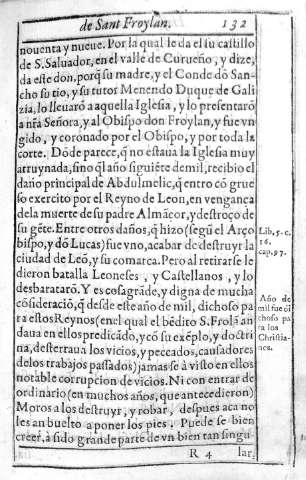 de Sant Froylan. 132
nouenta y nueue. Por la qual le da el su castillo
de S. Saluador, en el valle de Curueño, y dize,
da este don, porq̃ su madre, y el Conde dõ San-
cho su tio, y su tutor Menendo Duque de Gali
zia, lo lleuarõ a aquella Iglesia, y lo presentarõ
a nr̃a Señora, y al Obispo don Froylan, y fue vn
gido, y coronado por el Obispo, y por toda la
corte. Dõde parece, q̃ no estaua la Iglesia muy
arruynada, sino q̃ l año siguiẽte de mil, recibio el
daño principal de Abdulmelic, q̃ entro cõ grue
so exercito por el Reyno de Leon, en vengança
de la muerte de su padre Almãçor, y destroço de
su gẽte. Entre otros daños, q̃ hizo (segũ el Arço
bispo, y dõ Lucas) fue vno, acabar de destruyr la
ciudad de Leõ, y su comarca. Pero al retirarse le
dieron batalla Leoneses, y Castellanos, y lo
desbaratarõ. Y es cosa grãde, y digna de mucha
cõsideraciõ, q̃ desde este año de mil, dichoso pa
ra estos Reynos (en el qual el bẽdito S. Frolã an
daua en ellos predicãdo, y cõ su exẽplo, y doctri
na, desterraua los vicios, y peccados, causadores
de los trabajos passados) jamas se à visto en ellos
notable corrupcion de vicios. Ni con entrar de
ordinario (en muchos años, que antecedieron)
Moros a los destruyr, y robar, despues aca no
les an buelto a poner los pies. Puede se bien
creer, à sido grande parte de vn bien tan singu
R 4 lar,
Lib. 5. c.
16.
cap. 97.
Año de
mil fue di
choso pa
ra los
Christia-
nos.